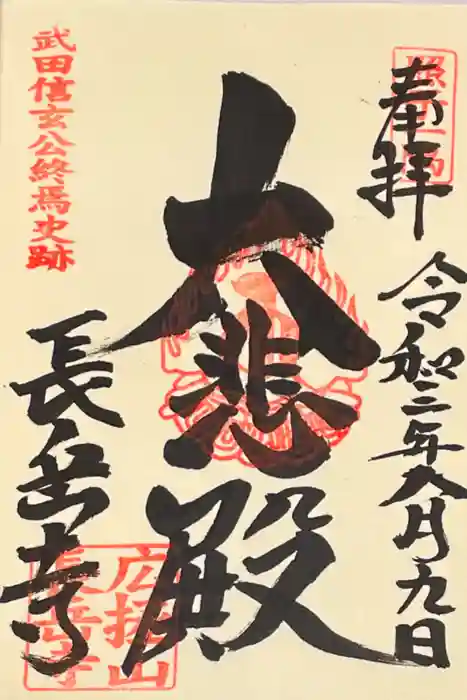 奉拝
令和三年八月九日
大悲殿
武田信玄公終焉史跡
長岳寺
広拯山
長岳寺